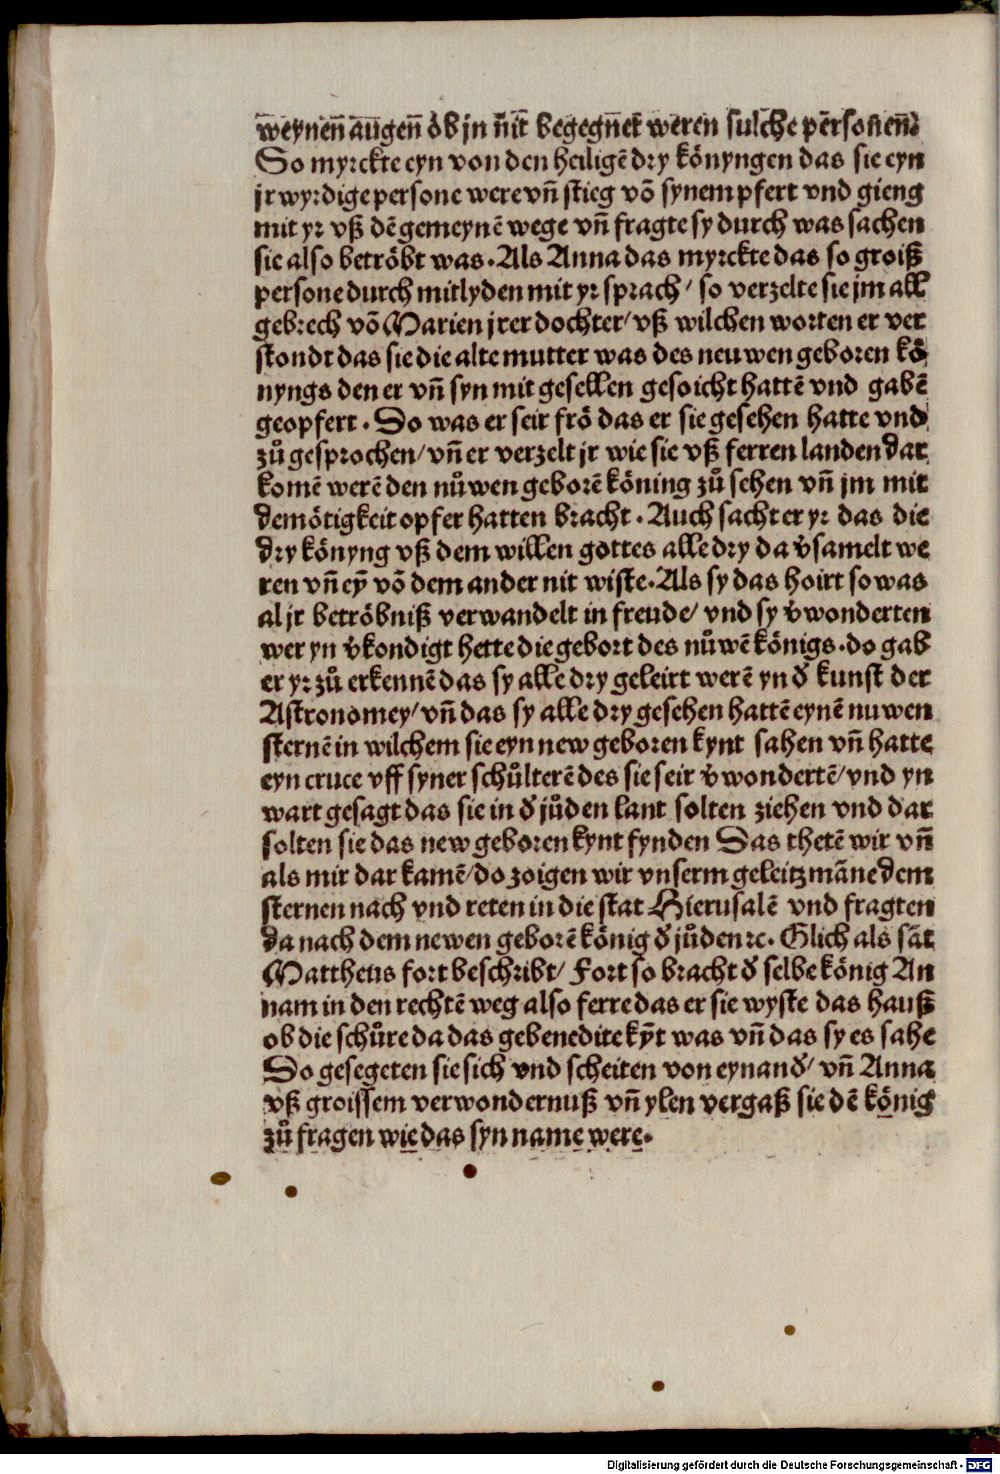 weynen augen ob jn nit begegnet weren sulche personen.
So myrckte eyn von den heiligē dry kônyngen das sie eyn
jr wyrdige persone were vn̄ stieg vō synem pfert vnd gieng
mit yr vß dē gemeynē wege vn̄ fragte sy durch was sachen
sie also betrôbt was. Als Anna das myrckte das so groiß
persone durch mitlyden mit yr sprach/ so verzelte sie jm all
gebrech vō Marien jrer dochter/ vß wilchen worten er ver
stondt das sie die alte mutter was des neuwen geboren kô
nyngs den er vn̄ syn mit gesellen gesoicht hattē vnd gabē
geopfert. So was er seir frô das er sie gesehen hatte vnd
zů gesprochen/ vn̄ er verzelt jr wie sie vß ferren landen dar
komē werē den nůwen geborē kôning zů sehen vn̄ jm mit
demôtigkeit opfer hatten bracht. Auch sacht er yr das die
dry kônyng vß dem willen gottes alle dry da v̓samelt we
ren vn̄ eȳ vō dem ander nit wiste. Als sy das hoirt so was
al jr betrôbniß verwandelt in freude/ vnd sy v̓wonderten
wer yn v̓kondigt hette die gebort des nůwē kônigs. do gab
er yr zů erkennē das sy alle dry geleirt werē yn d̓ kunst der
Astronomey/ vn̄ das sy alle dry gesehen hattē eynē nuwen
sternē in wilchem sie eyn new geboren kynt sahen vn̄ hatte
eyn cruce vff syner schůlterē des sie seir v̓wondertē/ vnd yn
wart gesagt das sie in d̓ jůden lant solten ziehen vnd dar
solten sie das new geboren kynt fynden Das thetē wir vn̄
als mir dar kamē/ do zoigen wir vnserm geleitzmāne dem
sternen nach vnd reten in die stat Hierusalē vnd fragten
da nach dem newen geborē kônig d̓ jůden ꝛc. Glich als sāt
Mattheus fort beschribt/ Fort so bracht d̓ selbe kônig An
nam in den rechtē weg also ferre das er sie wyste das hauß
ob die schůre da das gebenedite kȳt was vn̄ das sy es sahe
Do gesegeten sie sich vnd scheiten von eynand̓/ vn̄ Anna
vß groissem verwondernuß vn̄ ylen vergaß sie dē kônig
zů fragen wie das syn name were.
Digitalisierung gefördert durch die Deutsche Forschungsgemeinschaft - DFG